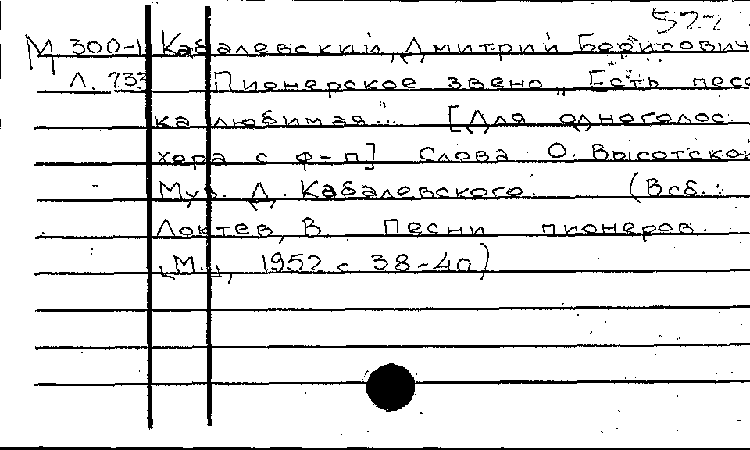 522
М 300-1 Кабалевский, Дмитрий Борисович
Л. 733 Пионерское звено „Есть песе
ка любимая"... [Для одноголос.
хора с ф-п] Слова О. Высотской
Муз. Д. Кабалевского. (В сб.:
Локтев, В. Песни пионеров.
[М.], 1952 с 38-40)